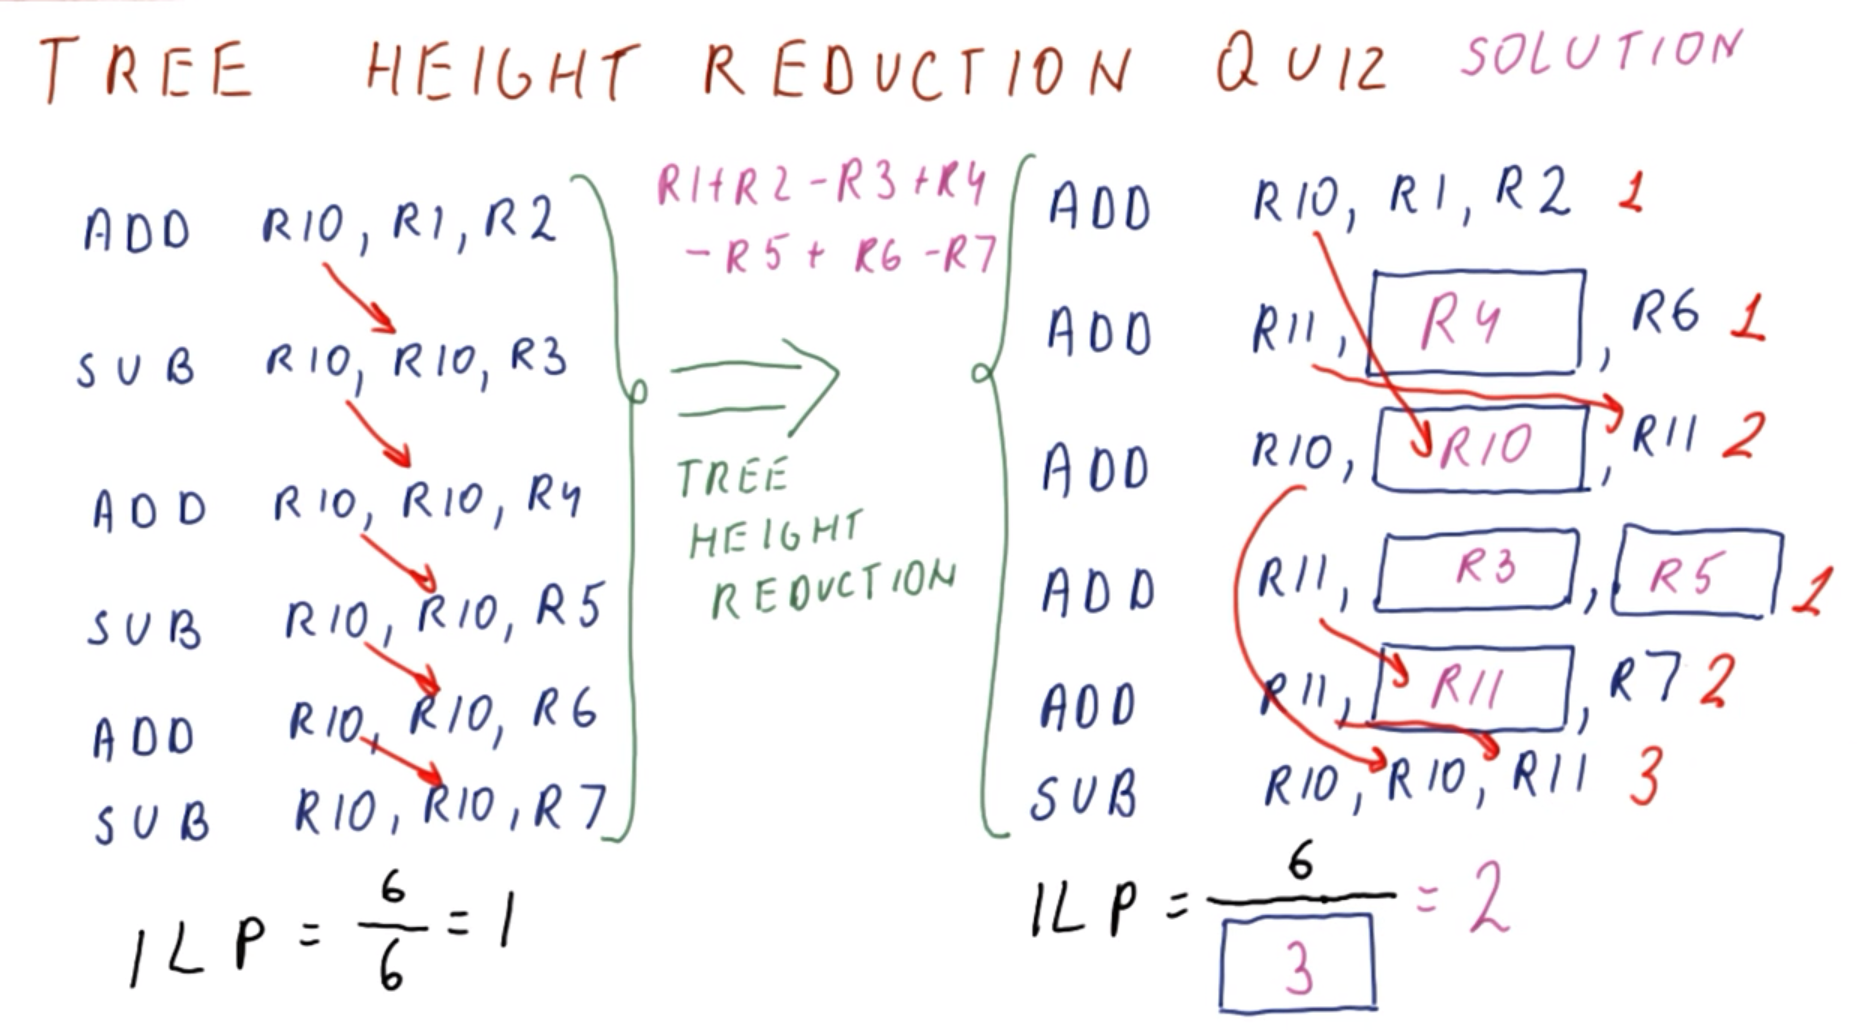 TREE HEIGHT REDUCTION QUIZ SOLUTION
ADD R10, R1, R2
SUB R10, R10, R3
ADD R10, R10, R4
SUB R10, R10, R5
ADD R10, R10, R6
SUB R10, R10, R7
ILP = 6/6 = 1
R1+R2-R3+R4
-R5+R6-R7
TREE
HEIGHT
REDUCTION
ADD R10, R1, R2 1
ADD R11, R4, R6 1
ADD R10, R10, R11 2
ADD R11, R3, R5 1
ADD R11, R11, R7 2
SUB R10, R10, R11 3
ILP = 6/3 = 2